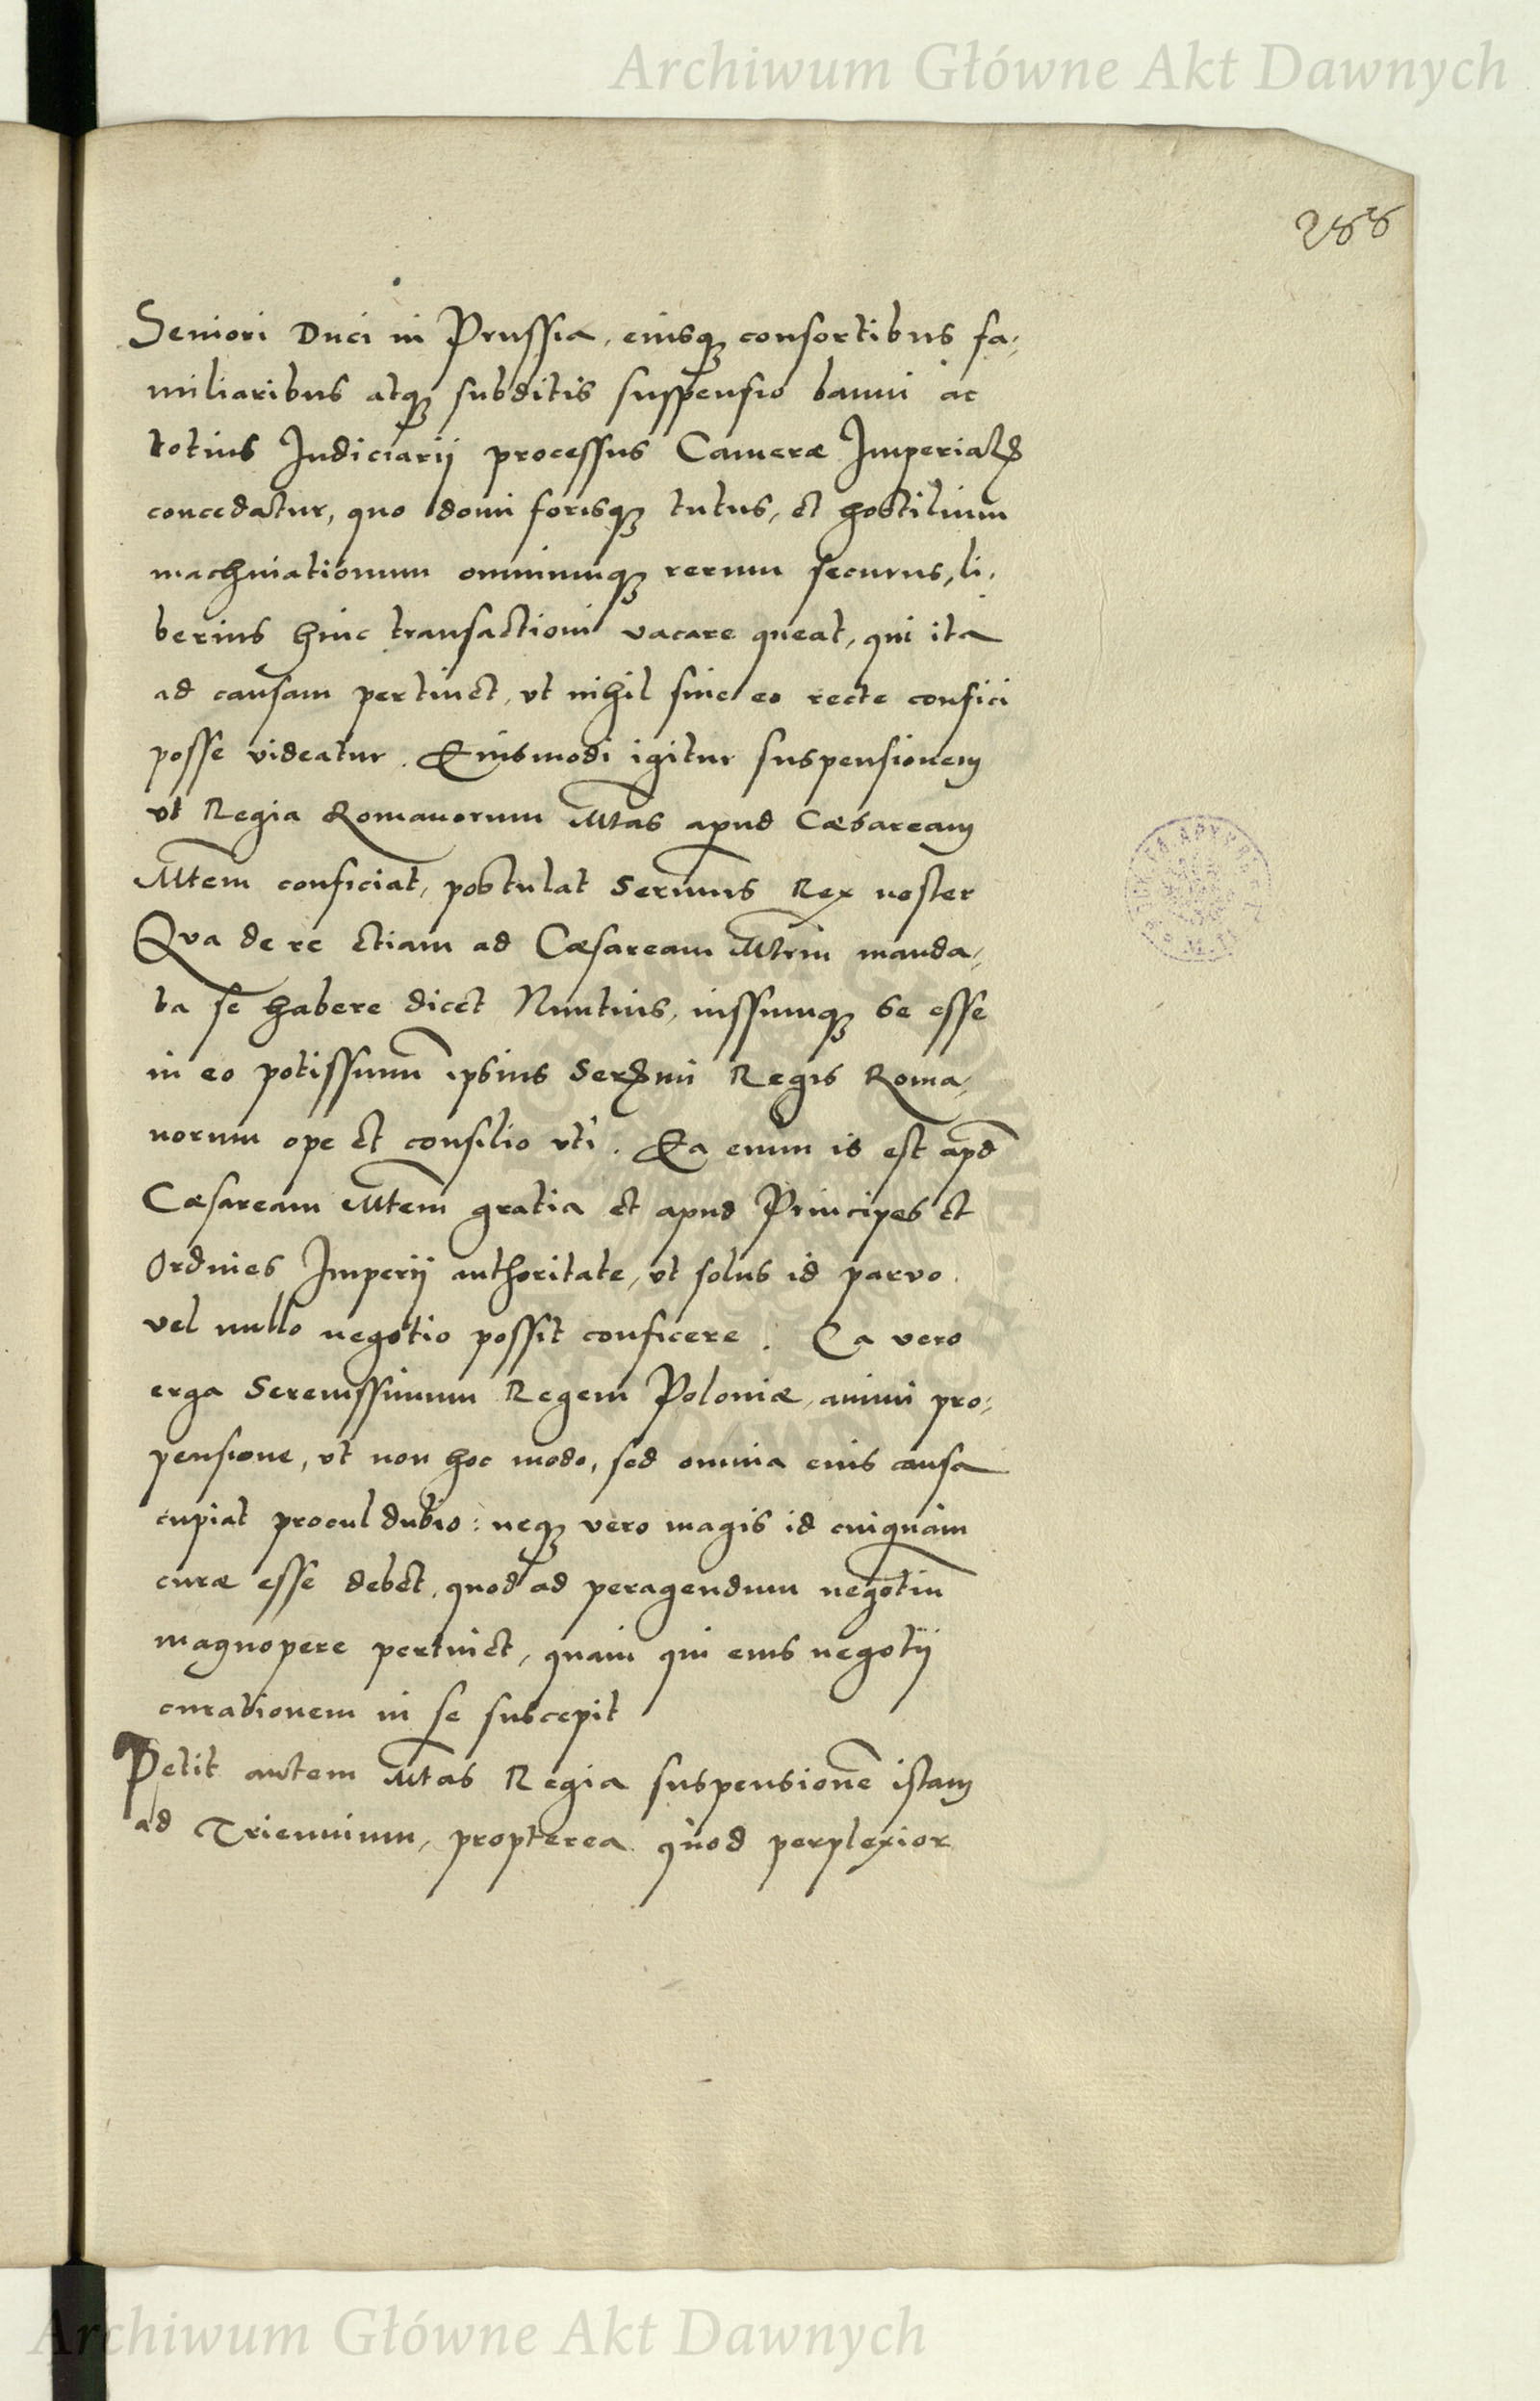 Archiwum Główne Akt Dawnych
288
Seniori Duci in Prussia, eiusq₃ consortibus fa-
miliaribus atq₃ subditis suspensio banni ac
totius Judiciarij processus Cameræ Imperialis
concedatur, quo domi forisq₃ tutus, et hostilium
machinationum omniumq₃ rerum securus, li-
berius huic transactioni vacare queat, qui ita
ad causam pertinet, vt nihil sine eo recte confici
posse videatur. Eiusmodi igitur suspensionem
vt Regia Romanorum Mtas apud Cæsaream
Mtem conficiat, postulat Sermus Rex noster
Qua de re etiam ad Cæsaream Mtem manda-
ta se habere dicet Nuntius, iussumq₃ se esse
in eo potissimum ipsius Sermi Regis Roma-
norum ope et consilio vti. Ea enim is est apd
Cæsaream Mtem gratia et apud Principes et
Ordines Imperij authoritate, vt solus id parvo
vel nullo negotio possit conficere. Ea vero
erga Serenissimum Regem Poloniæ, animi pro-
pensione, vt non hoc modo, sed omnia eius causa
cupiat procul dubio: neq₃ vero magis id cuiquam
curæ esse debet, quod ad peragendum negotiū
magnopere pertinet, quam qui eius negotij
curationem in se suscepit
Petit autem Mtas Regia suspensionē istam
ad Triennium, propterea quod perplexior
Archiwum Główne Akt Dawnych